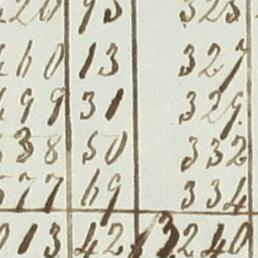 20 95 325
460 13 327
499 31 329
538 50 332
577 69 334
013 42 13,240